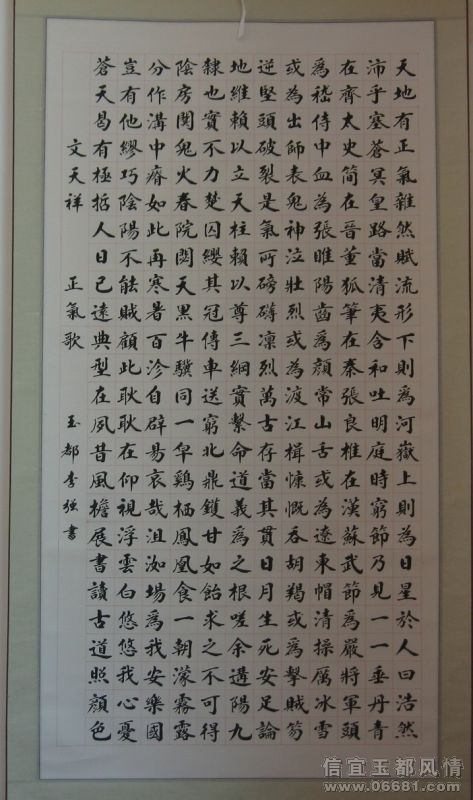 天地有正氣雜然賦流形下則為河嶽上則為日星於人曰浩然
沛乎塞蒼冥皇路當清夷含和吐明庭時窮節乃見一一垂丹青
在齊太史簡在晉董狐筆在秦張良椎在漢蘇武節為嚴將軍頭
為嵇侍中血為張睢陽齒為顏常山舌或為遼東帽清操厲冰雪
或為出師表鬼神泣壯烈或為渡江楫慷慨吞胡羯或為擊賊笏
逆豎頭破裂是氣所磅礴凜烈萬古存當其貫日月生死安足論
地維賴以立天柱賴以尊三綱實繫命道義為之根嗟余遘陽九
隸也實不力楚囚纓其冠傳車送窮北鼎鑊甘如飴求之不可得
陰房闃鬼火春院閟天黑牛驥同一皁鷄栖鳳凰食一朝濛霧露
分作溝中瘠如此再寒暑百沴自辟易哀哉沮洳場為我安樂國
豈有他繆巧陰陽不能賊顧此耿耿在仰視浮雲白悠悠我心憂
蒼天曷有極哲人日已遠典型在夙昔風檐展書讀古道照顏色
文天祥 正氣歌 玉都李强書
信宜玉都风情
www.06681.com